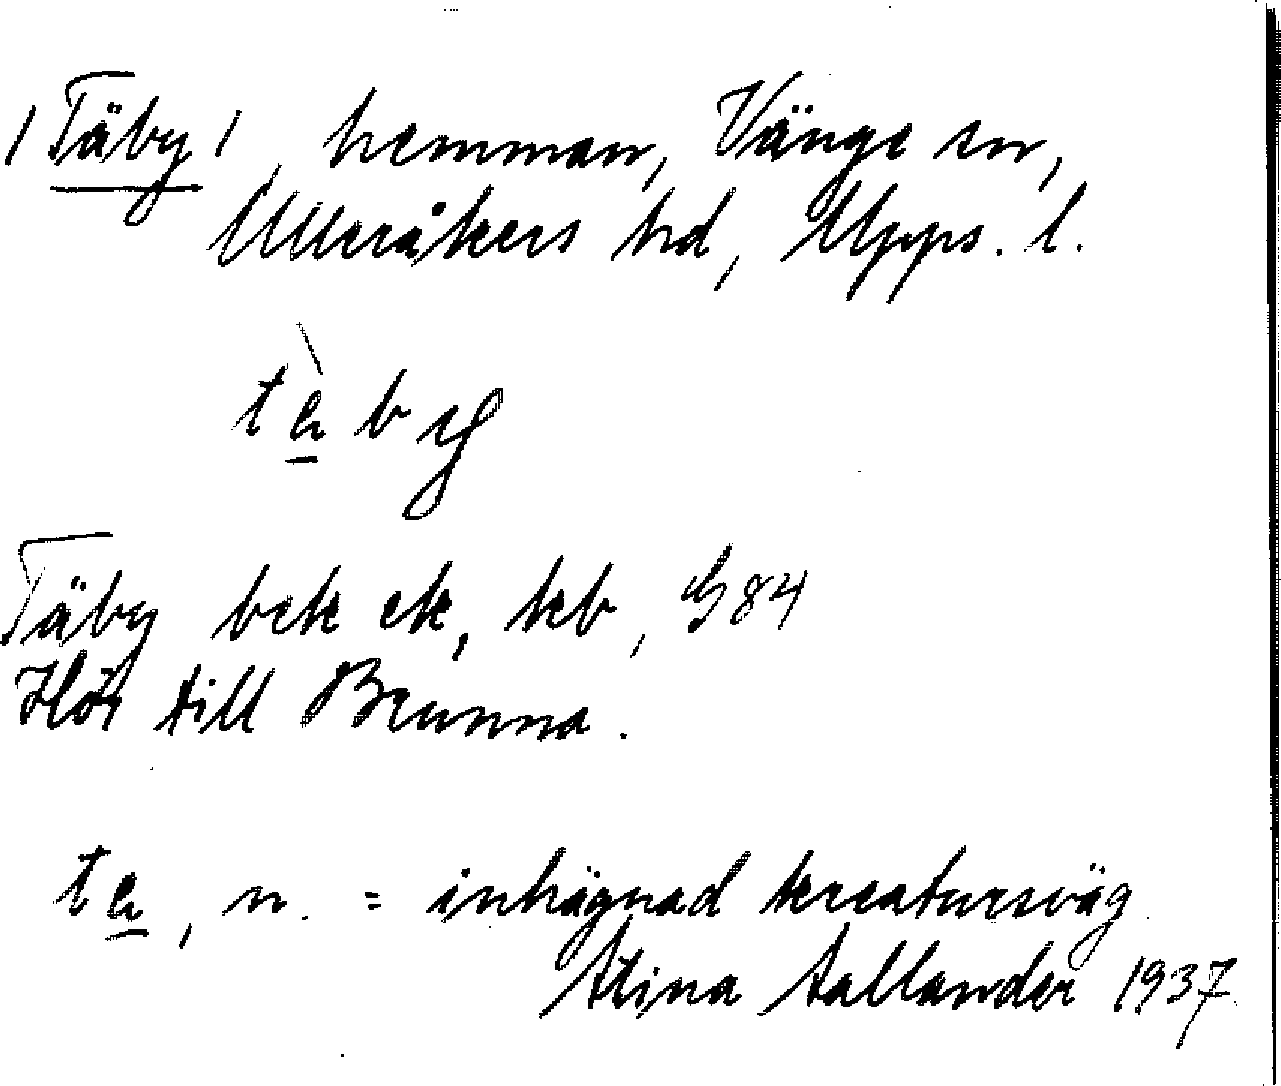 /Täby/, hemman, Vänge sn,
Ulleråkers hd, Upps. l.
tὲby
Täby bek ek, kb, G 84
Hör till Brunna.
tε, n. = inhägnad kreatursväg
Stina Aallander 1937